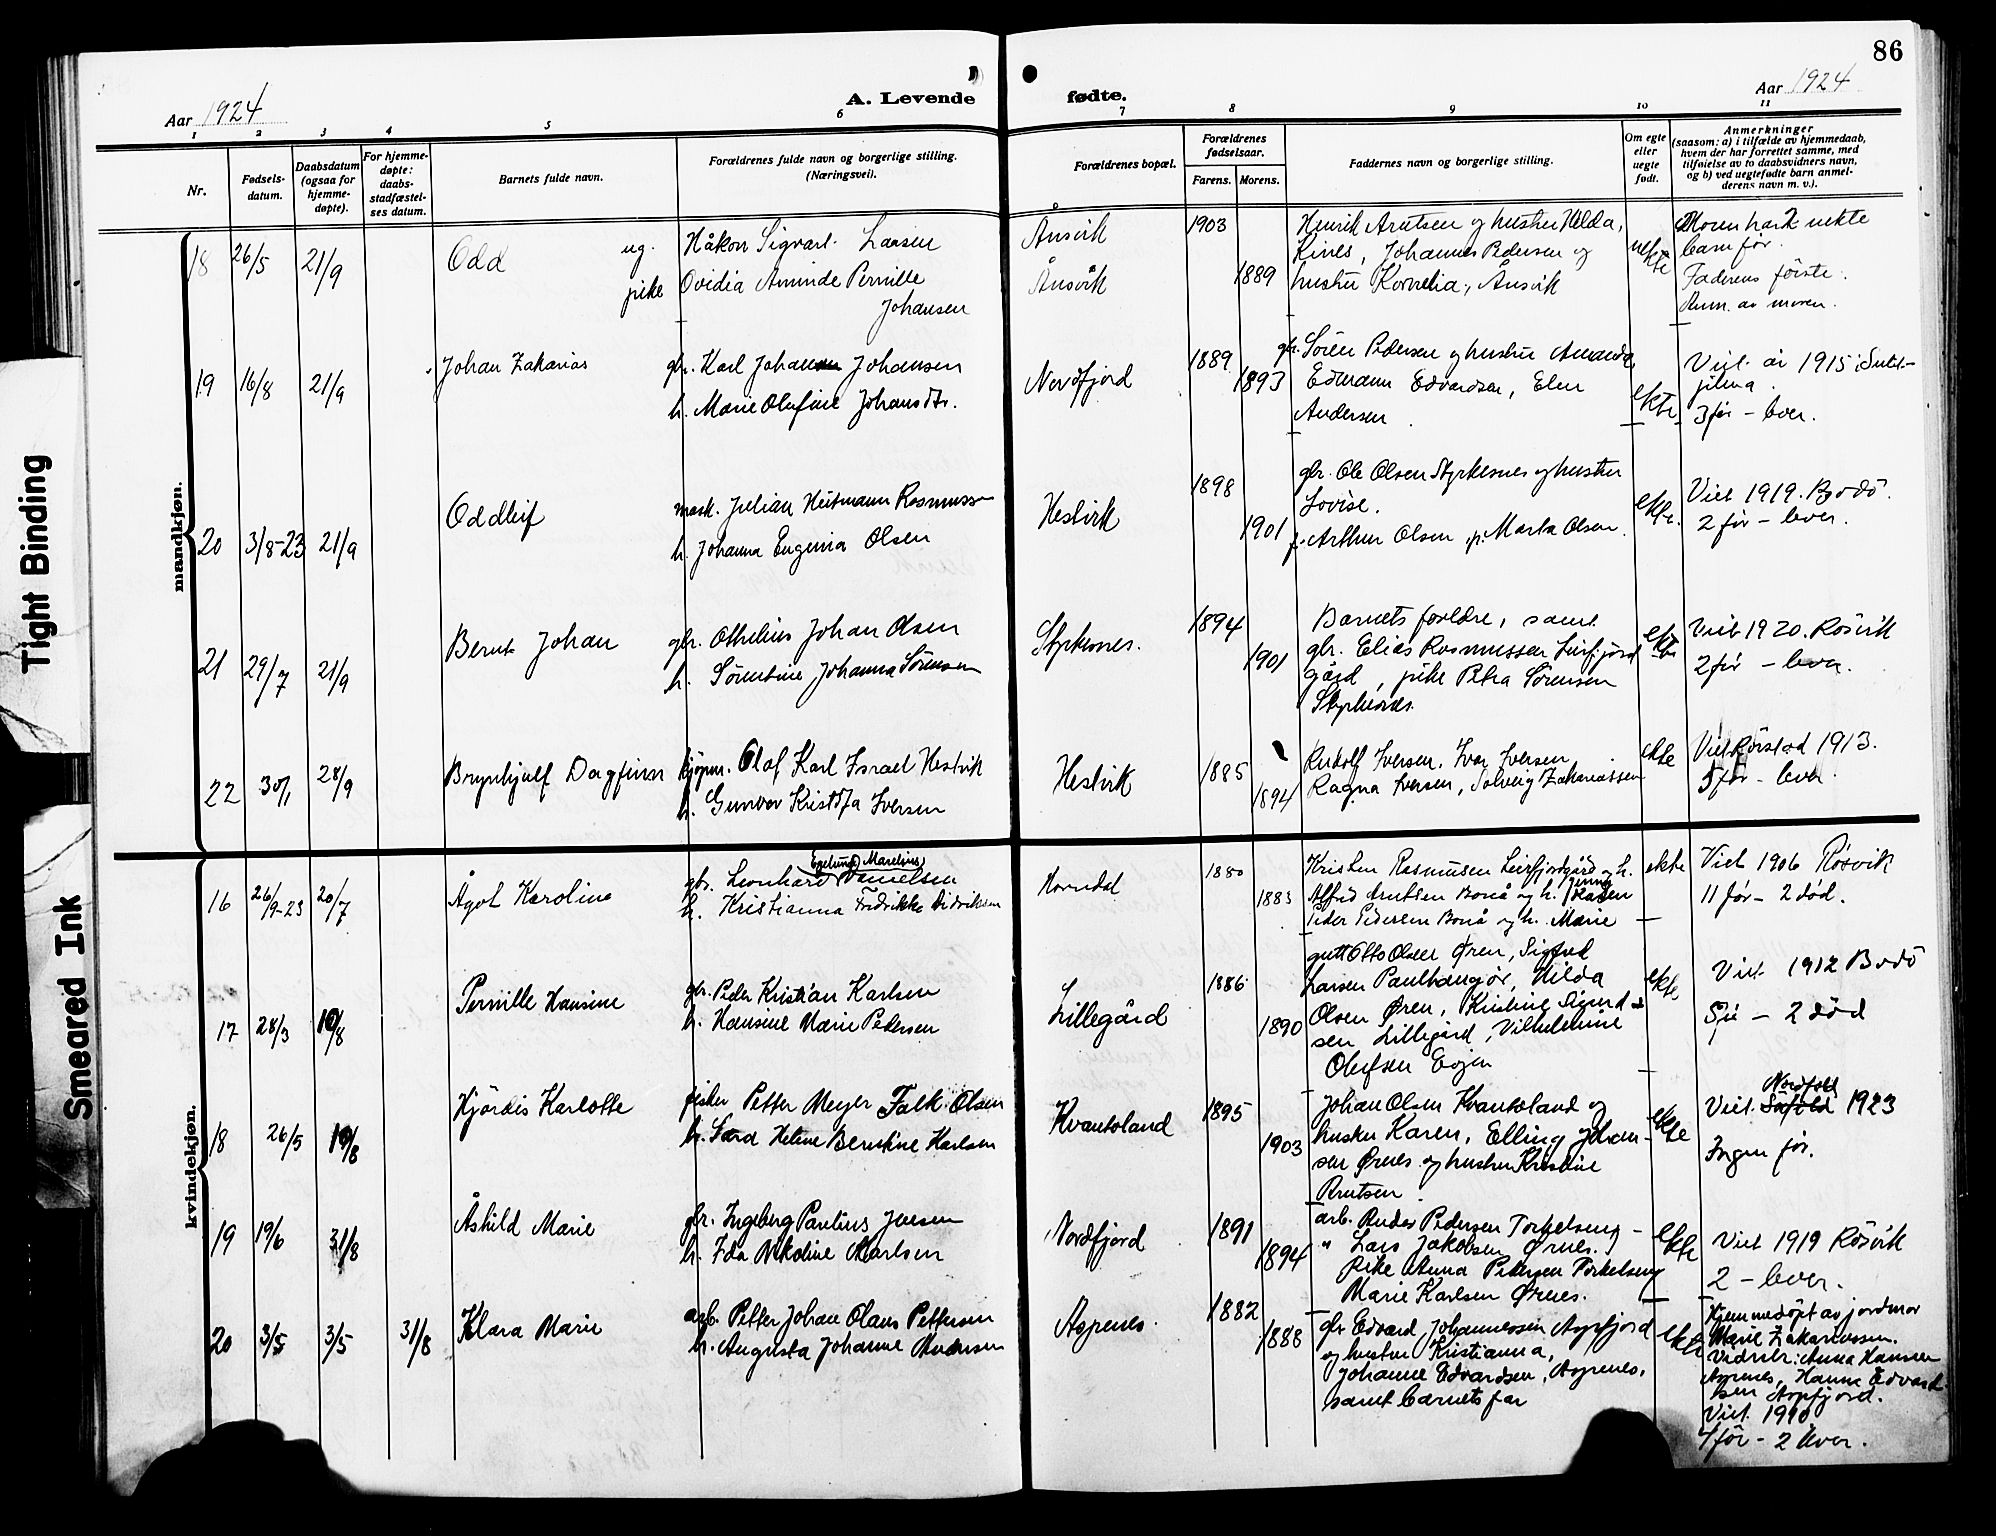 86
Aar 1924
A. Levende
fødte.
Aar 1924
1 2 3 4 5 6 7 8 9 10 11
Nr.
Fødsels-
datum.
Daabsdatum
(ogsaa for
hjemme-
døpte).
For hjemme-
døpte:
daabs-
stadfæstel-
ses datum.
Barnets fulde navn.
Forældrenes fulde navn og borgerlige stilling.
(Næringsvei).
Forældrenes bopæl.
Forældrenes
fødselsaar.
Farens. Morens.
Faddernes navn og borgerlige stilling.
Om egte
eller
uegte
født.
Anmerkninger
(saasom: a) i tilfælde av hjemmedaab,
hvem der har forrettet samme, med
tilføielse av to daabsvidners navn,
og b) ved uegtefødte barn anmel-
derens navn m. v.).
mandkjøn.
18 26/5 21/9 Odd
ug. Håkon Sigvart Larsen
pike Ovidia Aminde Pernille
Johansen
Ånsvik
Ånsvik
1903
1889
Henrik Arntsen og hustru Hilda,
Kines, Johannes Pedersen og
hustru Kornelia, Ånsvik
uekte
Moren har 2 uekte
barn før.
Faderens første.
Anm. av moren.
19 16/8 21/9 Johan Zakarias
gbr. Karl Johan Johansen
h. Marie Olufine Johansdtr.
Nordfjord
1889
1893
gbr. Sören Pedersen og hustru Amanda,
Edmann Edvardsen, Elen
Andersen
ekte
Viet år 1915 Sulit-
jelma.
3 før - lever.
20 3/8-23 21/9 Oddleif
mask. Julian Heitmann Rasmussen
h. Johanna Eugenia Olsen
Hestvik
1898
1901
gbr. Ole Olsen Styrkesnes og hustru
Lovise.
Arthur Olsen, p. Marta Olsen.
ekte.
Viet 1919. Bodö.
2 før - lever.
21 29/7 21/9 Bernt Johan
gbr. Othelius Johan Olsen
h. Sörentine Johanna Sörensen
Styrkesnes.
1894
1901
Barnets foreldre, samt
gbr. Elias Rasmussen Leirfjord
gård, pike Petra Sörensen
Styrkesnes.
ekte
Viet 1920. Rösvik
2 før - lever.
22 30/1 28/9 Brynhjulf Dagfinn
kjøpm. Olaf Karl Israel Hestvik
h. Gunvor Kristofa Iversen
Hestvik
1885
1894
Rudolf Iversen, Ivar Iversen
Ragna Iversen, Solveig Zakariassen
ekte
Viet Rörstad 1913.
5 før - lever.
kvindekjøn.
16 26/9-23 20/7 Ågot Karoline
Marelius
gbr. Leonhard Danielsen
h. Kristianna Fredrikke Didriksen
Horndal
1880
1883
Kristen Rasmussen Leirfjordgård og h.
Alfred Arntsen Bonå og h.
Peder Pedersen Bonå og h. Marie
ekte
Viet 1906 Rösvik
11 før - 2 död.
17 28/3 10/8 Pernille Hansine
gbr. Peder Kristian Karlsen
h. Hansine Marie Pedersen
Lillegård
1886
1890
gutt Otto Olsen Øren, Sigfred
Larsen Paulhaugjor, Hilda
Olsen Øren, Kristine Sigurd-
sen Lillegård, Vilhelmine
Olufsen Evjen
ekte
Viet 1912 Bodö
- 2 död
18 26/5 10/8 Hjördis Karlotte
fisker Petter Meyer Falk Olsen
h. Sara Helene Berntine Karlsen
Kvantoland
1895
1903
Johan Olsen Kvantoland og
hustru Karen, Elling Johan-
sen Ørnes og hustru Kristine
Arntsen
ekte
Nordfold
Viet. 1923
Ingen før.
19 19/6 31/8 Åshild Marie
gbr. Ingeberg Paulius Jensen
h. Ida Nikoline Karlsen
Nordfjord
1891
1894
arb. Anders Pedersen Torkelseng -
" Lars Jakobsen Ørnes.
Pike Anna Pedersen Torkelseng
Marie Karlsen Ørnes.
ekte
Viet 1919 Rösvik
2 - lever.
20 3/5 3/5 31/8 Klara Marie
arb. Petter Johan Olaus Pettersen
h. Augusta Johanne Andersen
Aspenes.
1882
1888
gbr Edvard Johannessen Aspfjord
og hustru Kristianna,
Johanne Edvardsen, Aspenes,
samt barnets far
ekte
Hjemmedöpt av jordmor
Marie Zakariassen.
Vidner: Anna Hansen
Aspenes, Hanna Edvard-
sen Aspfjord.
Viet 1910
4 før - 2 lever.
Tight Binding
Smeared Ink